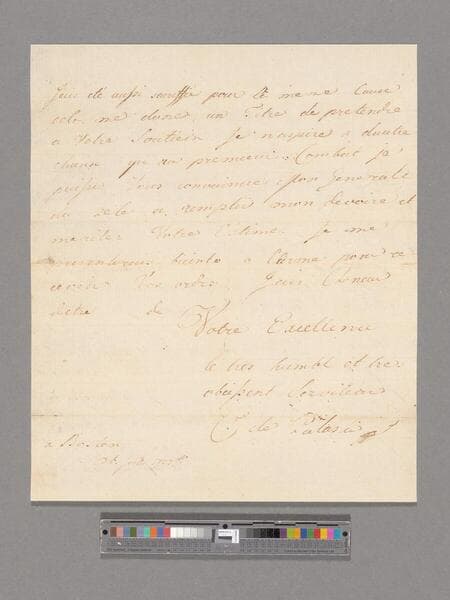 aussi pour la meme Cause
cela me done un Titre de pretendre
a Votre Soutiein Je n'aspire a d'autre
chause qu'au premieur Combat je
puisse Vous convaincre Mon General
du zele a remplir mon devoire et
meriter Votre Estime. Je me
bainto a l'armé pour re
cevoir Vos ordres, J'ais l'honeur
d'etre de
Votre Excellence
le tres humbl et tres
obeissent Serviteur
C. de Pulaski
a Boston